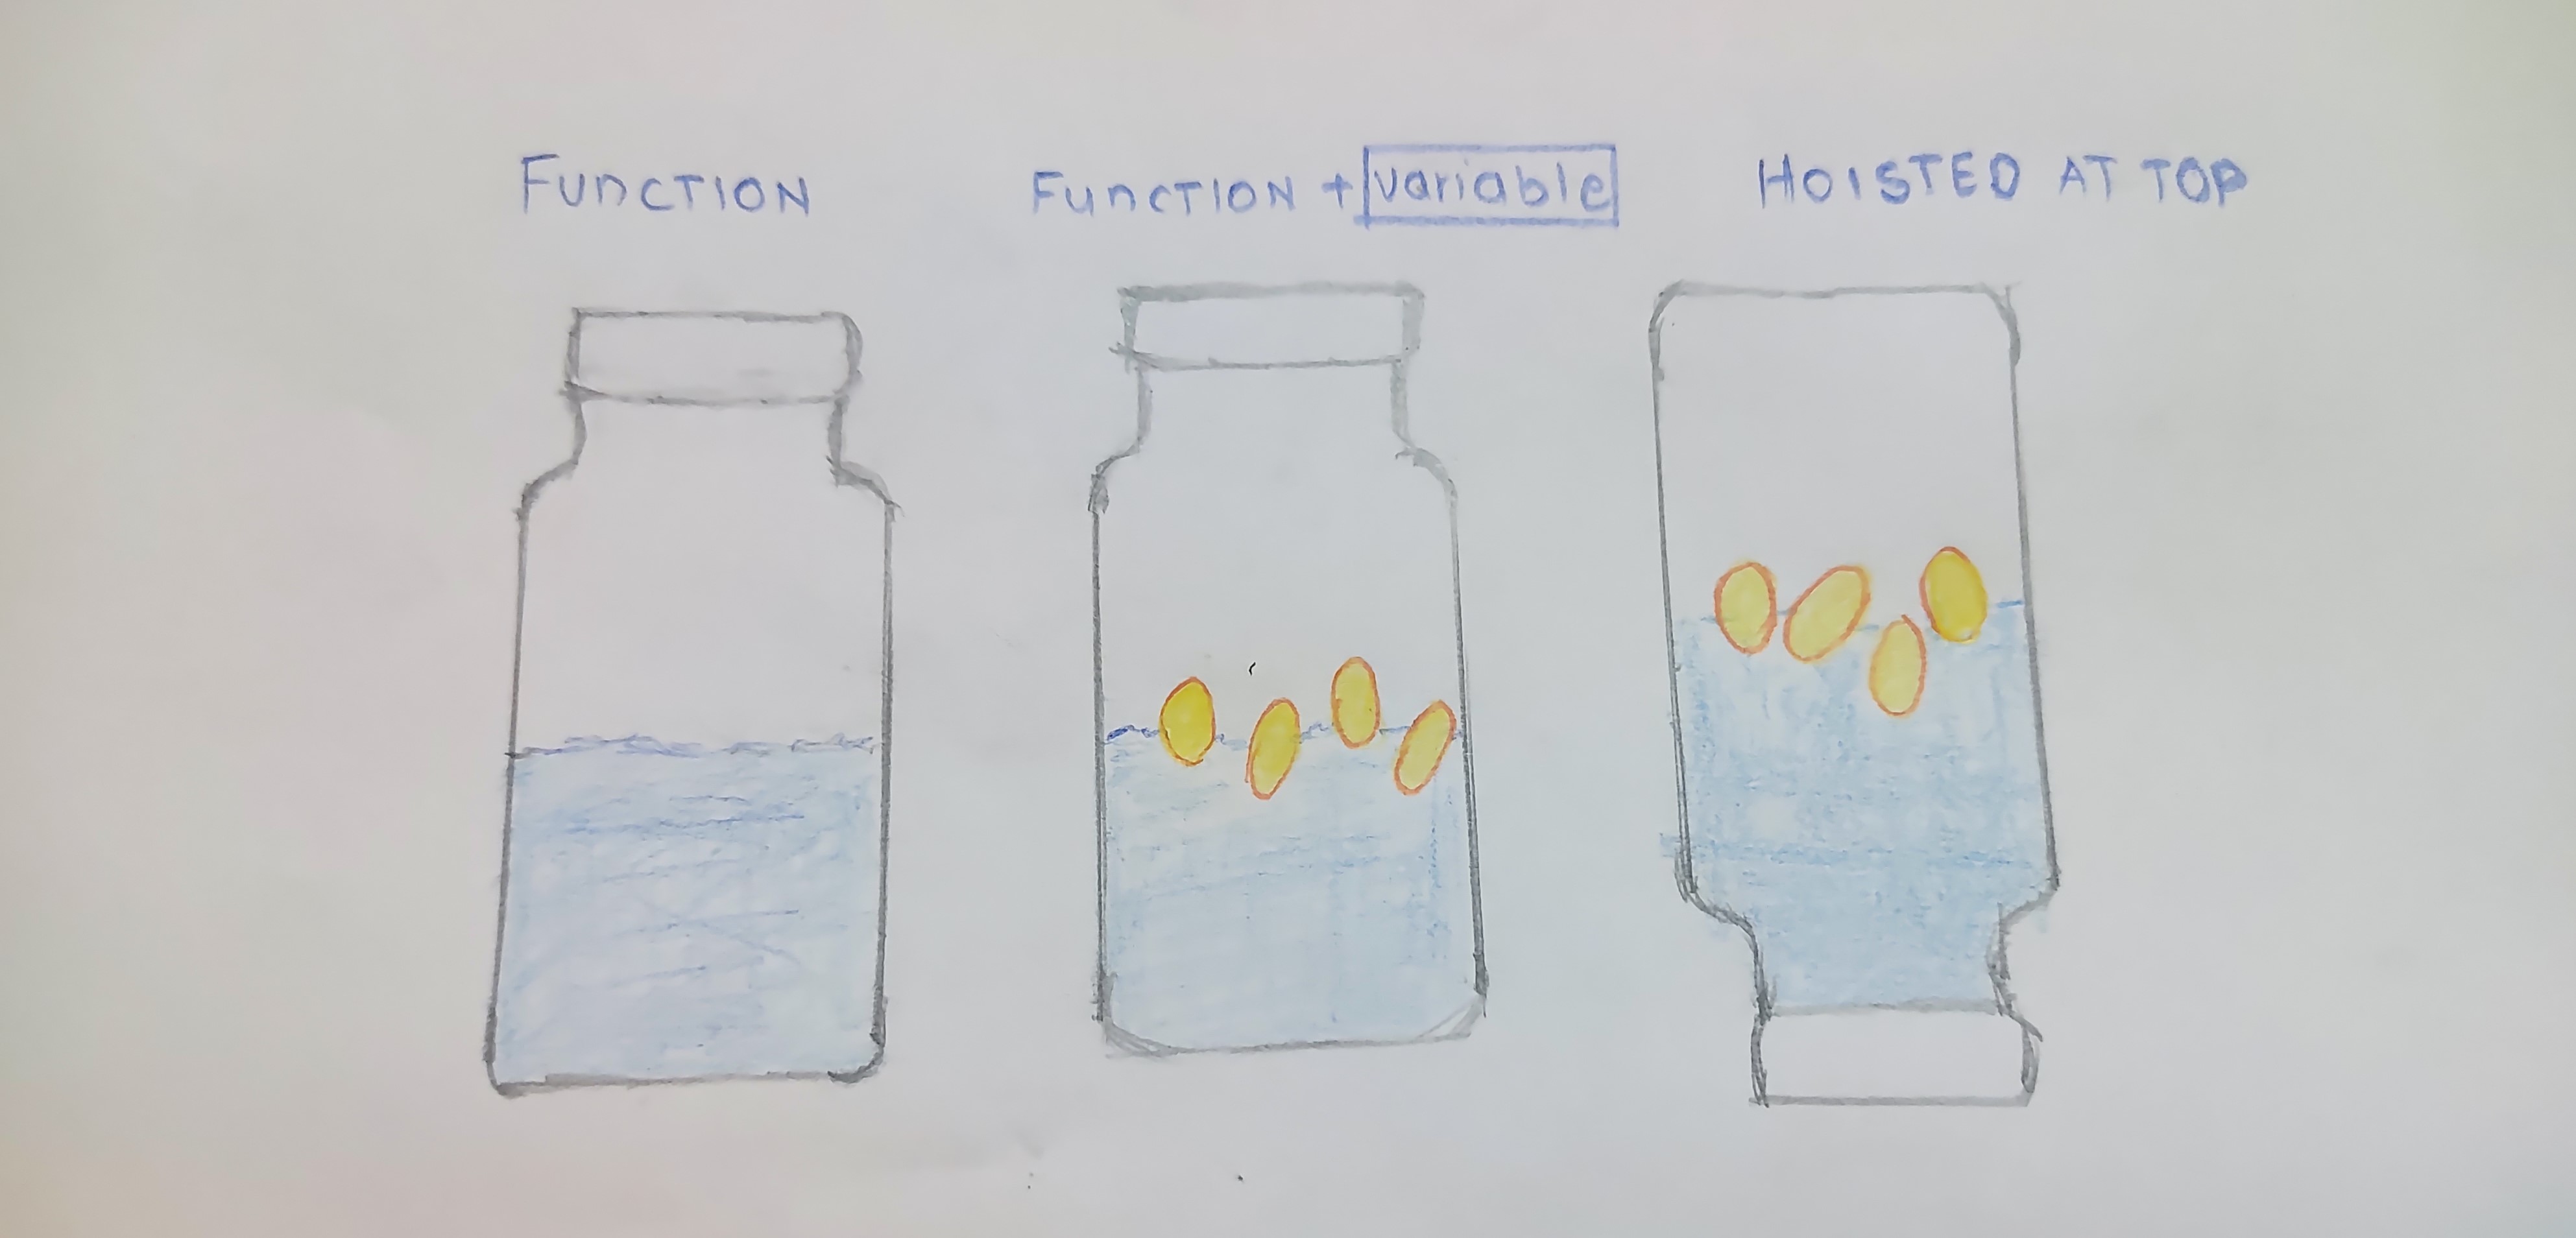 FUNCTION
FUNCTION + variable
HOISTED AT TOP